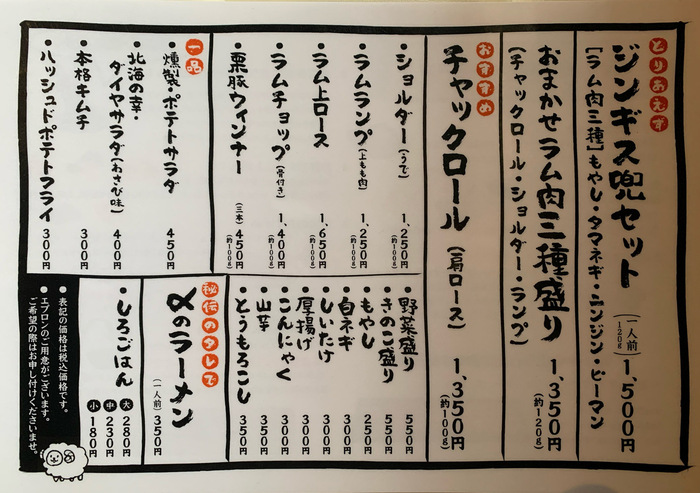 とりあえず
ジンギス兜セット(一人前120g)1,500円
[ラム肉三種]もやし・タマネギ・ニンジン・ピーマン
おまかせラム肉三種盛り 1,350円(約120g)
(チャックロール・ショルダー・ランプ)
おすすめ
チャックロール(肩ロース)1,350円(約100g)
・ショルダー(うで)1,250円(約100g)
・ラムランプ(上もも肉)1,250円(約100g)
・ラム上ロース 1,650円(約100g)
・ラムチョップ(骨付き)1,400円(約100g)
・栗豚ウィンナー(三本)450円(約100g)
・野菜盛り 550円
・きのこ盛り 550円
・もやし 250円
・白ネギ 300円
・しいたけ 300円
・厚揚げ 300円
・こんにゃく 300円
・山芋 350円
・とうもろこし 350円
一品
・燻製・ポテトサラダ 450円
・北海の幸・
ダイヤサラダ(わさび味)400円
・本格キムチ 300円
・ハッシュドポテトフライ 300円
秘伝のタレで
〆のラーメン(一人前)350円
・しろごはん
大 280円
中 230円
小 180円
●表記の価格は税込価格です。
●エプロンのご用意がございます。
ご希望の際はお申し付けくださいませ。